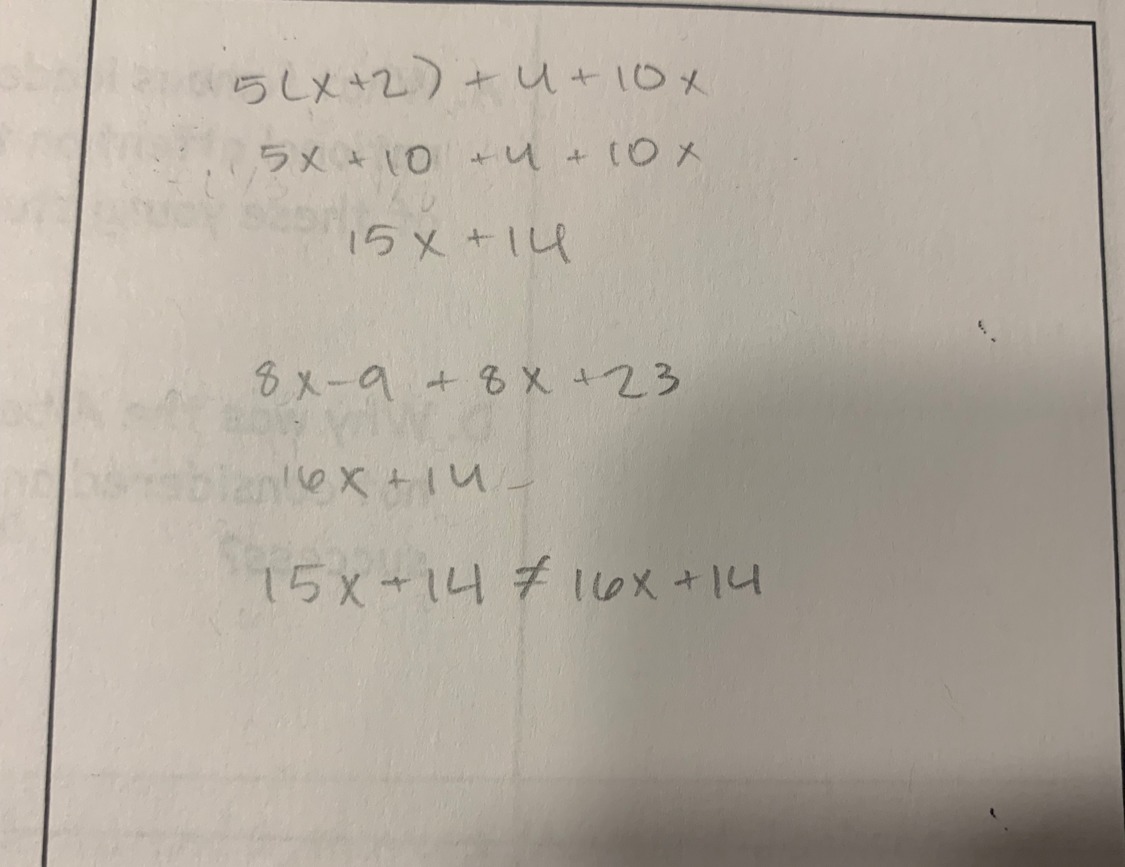 5(x+2) + 4 + 10x
5x + 10 + 4 + 10x
15x + 14
8x - 9 + 8x + 23
16x + 14
15x + 14 ≠ 16x + 14